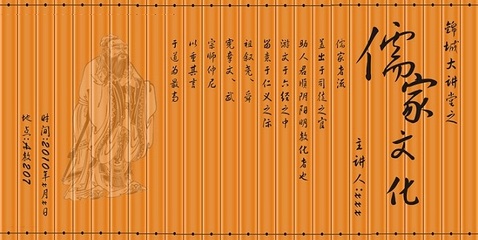 錦城大讲堂之
儒家文化
主讲人:±±±
儒家者流
盖出于司徒之官
助人君顺阴阳明教化者也
游文于六经之中
留意于仁义之际
祖叙尧、舜
宪章文、武
宗师仲尼
以重其言
于道为最高
时间:2010年±月±日
地点:教207